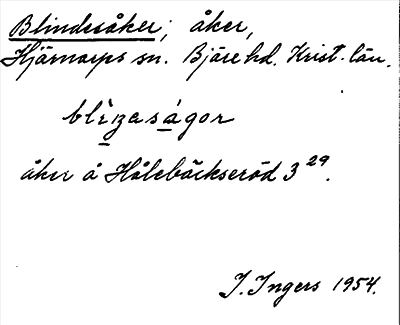 Blindesåker; åker,
Hjärnarps sn. Bjäre hd. Krist. län.
åker å Hålebäckseröd 3²⁹.
I. Ingers 1954.